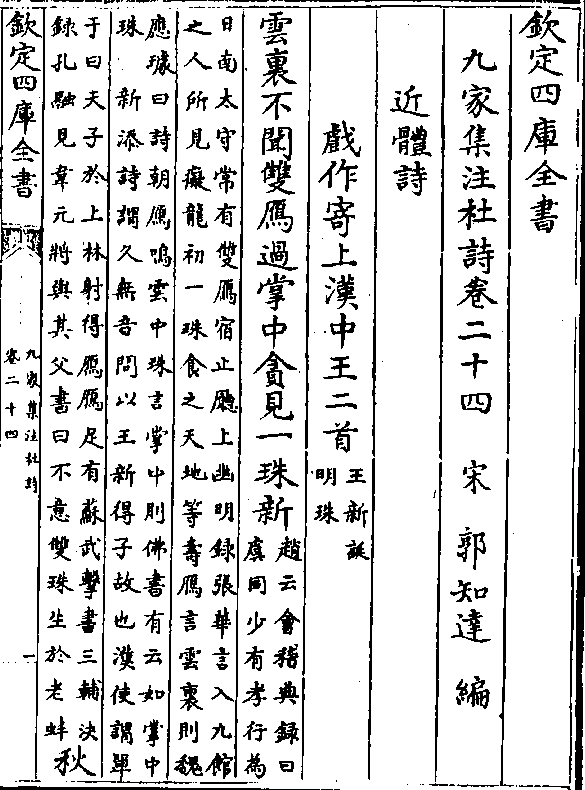 欽定四庫全書
九家集注杜詩卷二十四 宋 郭知達 編
近體詩
戲作寄上漢中王二首 王新誕
明珠
雲裏不聞雙鴈過掌中貪見一珠新 趙云會稽典録曰
虞同少有孝行為
日南太守常有雙鴈宿止廳上幽明録張華言入九館
之人所見癡龍初一珠食之天地等壽鴈言雲裏則魏
應璩曰詩朝鴈鳴雲中珠言掌中則佛書有云如掌中
珠 新添詩謂久無音問以王新得子故也漢使謂單
于曰天子於上林射得鴈鴈足有蘇武擊書三輔決
録孔融見韋元將與其父書曰不意雙珠生於老蚌 秋
欽定四庫全書
九家集注杜詩
卷二十四
一